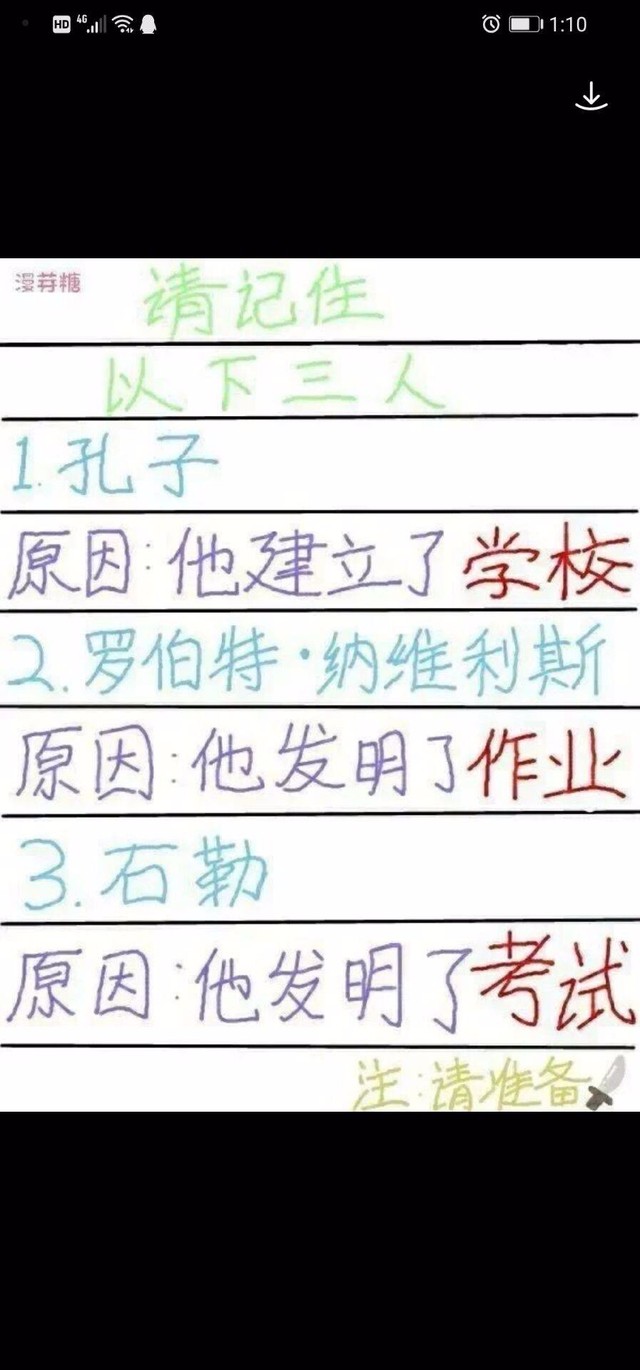 HD 4G 1:10
漫莽糖
请记住
以下三人
1.孔子
原因:他建立了学校
2.罗伯特·纳维利斯
原因:他发明了作业
3.石勒
原因:他发明了考试
注:请准备